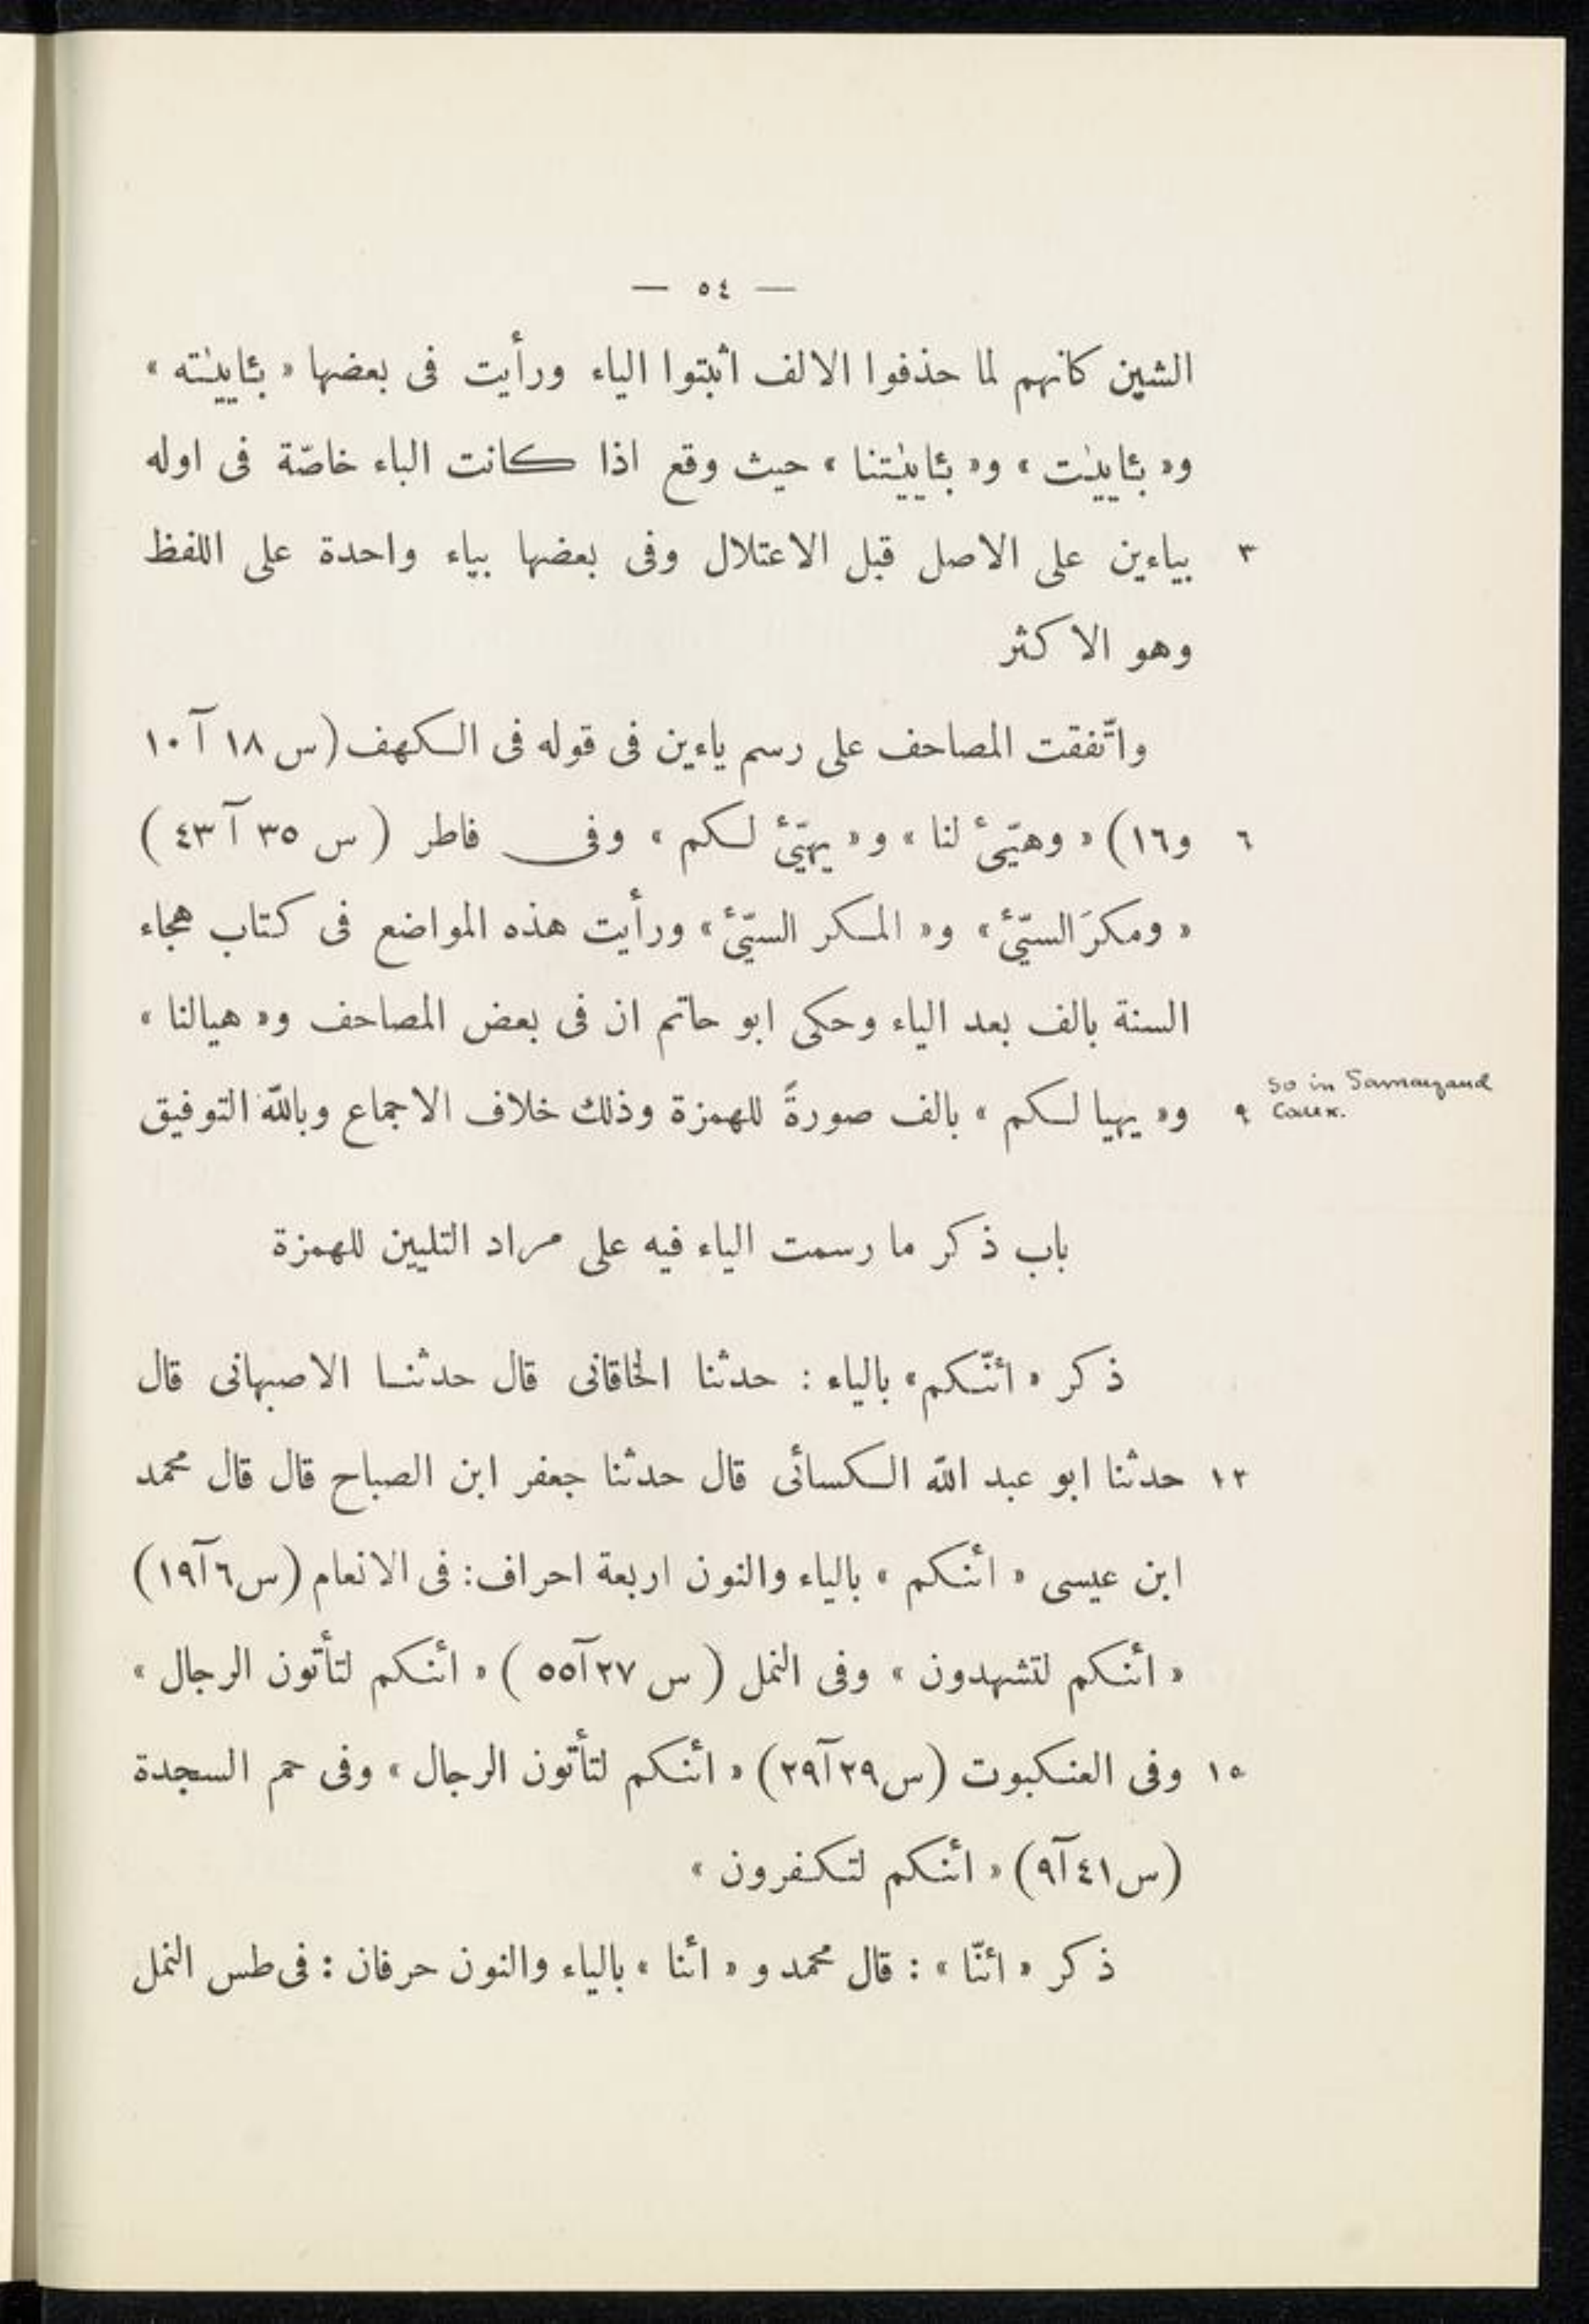 — ٥٤ —
الشين كانهم لما حذفوا الالف اثبتوا الياء ورأيت فى بعضها « بـٔاييٰته »
و« بـٔاييٰت » و« بـٔاييٰتنا » حيث وقع اذا كانت الباء خاصّة فى اوله
٣ بياءين على الاصل قبل الاعتلال وفى بعضها بياء واحدة على اللفظ
وهو الاكثر
واتّفقت المصاحف على رسم ياءين فى قوله فى الكهف (س ١٨ آ ١٠
٦ و١٦) « وهيّئ لنا » و« يهيّئ لكم » وفى فاطر ( س ٣٥ آ ٤٣ )
« ومكرَ السيّئ » و« المكر السيّئ » ورأيت هذه المواضع فى كتاب هجاء
السنة بالف بعد الياء وحكى ابو حاتم ان فى بعض المصاحف و« هيالنا »
٩ و« يهيا لكم » بالف صورةً للهمزة وذلك خلاف الاجماع وبالله التوفيق
so in Samarqand
باب ذكر ما رسمت الياء فيه على مراد التليين للهمزة
ذكر « ائنّكم » بالياء : حدثنا الخاقانى قال حدثنا الاصبهانى قال
١٢ حدثنا ابو عبد الله الكسائى قال حدثنا جعفر ابن الصباح قال قال محمد
ابن عيسى « ائنكم » بالياء والنون اربعة احراف: فى الانعام (س٦آ١٩)
« ائنكم لتشهدون » وفى النمل ( س ٢٧آ٥٥ ) « ائنكم لتأتون الرجال »
١٥ وفى العنكبوت (س٢٩آ٢٩) « ائنكم لتأتون الرجال » وفى حم السجدة
(س٤١آ٩) « ائنكم لتكفرون »
ذكر « ائنّا » : قال محمد و « ائنا » بالياء والنون حرفان : فى طس النمل